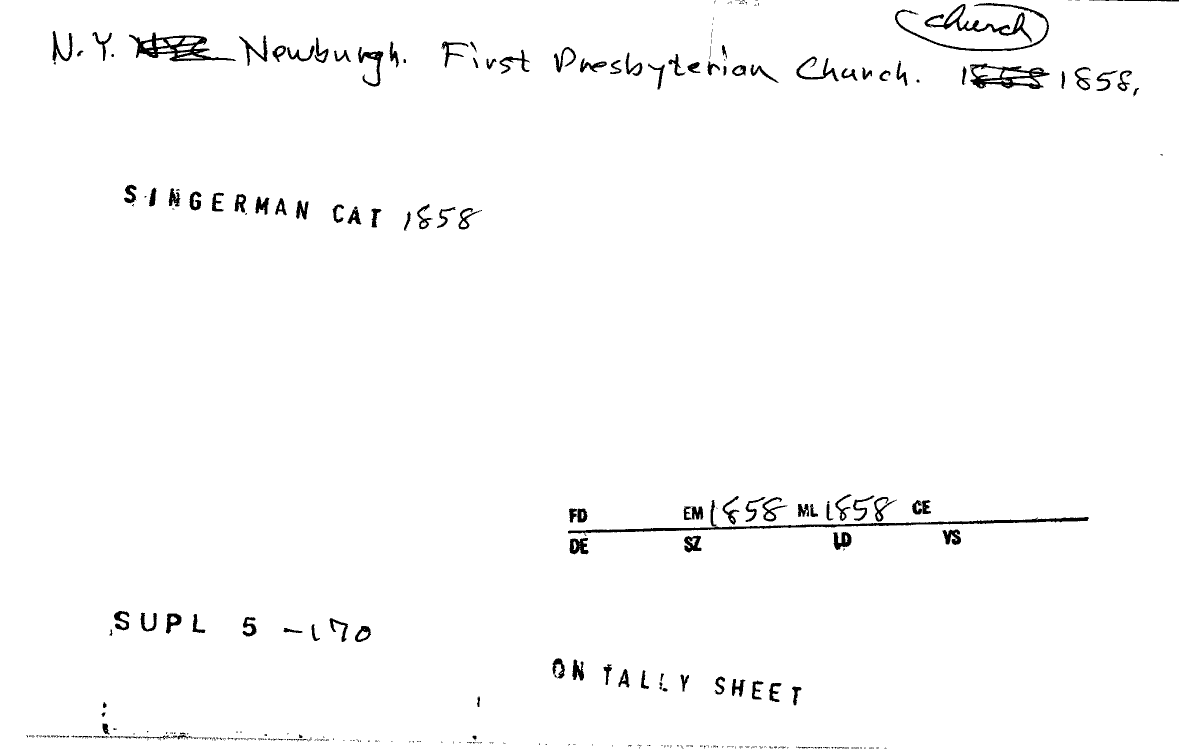 church
N.Y. Newburgh. First Presbyterian Church. 1858 1858,
SINGERMAN CAT 1858
FD EM 1858 ML 1858 CE
DE SZ LD VS
SUPL 5 -170
ON TALLY SHEET